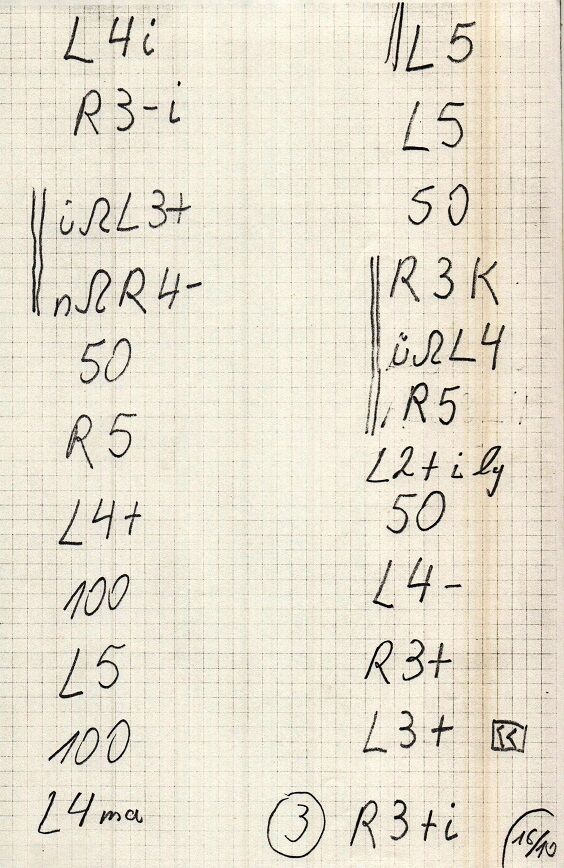 L4i
R3-i
üΩL3+
nΩR4-
50
R5
L4+
100
L5
100
L4ma
L5
L5
50
R3K
üΩL4
R5
L2+i ly
50
L4-
R3+
L3+
3 R3+i
16/10